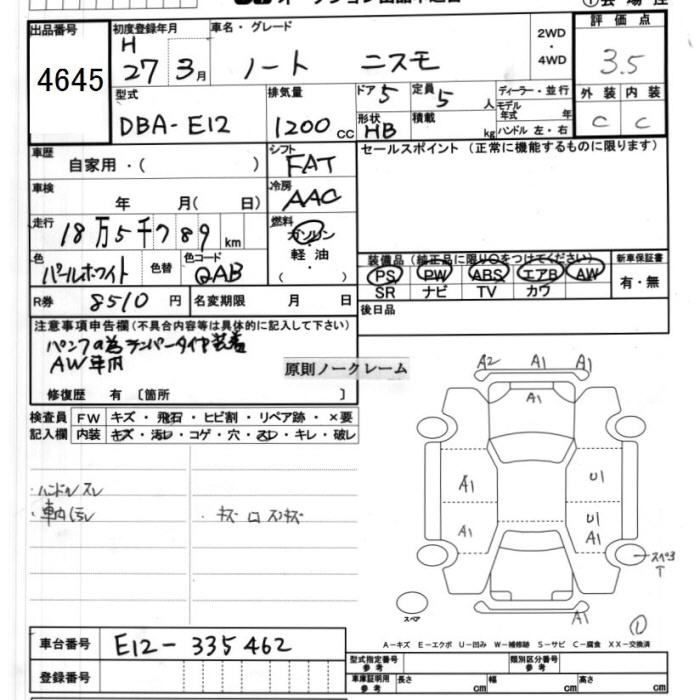 出品番号 初度登録年月 車名・グレード 2WD・4WD 評価点
4645 H 27 3月 ノート ニスモ 3.5
型式 排気量 ドア 5 定員 5 人 ディーラー・並行 外装 内装
DBA-E12 1200 cc 形状 HB 積載 kg モデル年式 年 ハンドル 左・右 C C
車歴 自家用・( ) シフト FAT セールスポイント (正常に機能するものに限ります)
車検 年 月( 日) 冷房 AAC
走行 18万5千789 km 燃料 ガソリン・軽油・( )
色 パールホワイト 色替 色コード QAB
装備品 (純正品に限り○をつけてください) 新車保証書
PS PW ABS エアB AW 有・無
SR ナビ TV カワ
R券 8510 円 名変期限 月 日 後日品
注意事項申告欄 (不具合内容等は具体的に記入して下さい)
パンクの為テンパータイヤ装着
AW車内
原則ノークレーム
修復歴 有 [箇所 ]
検査員 FW キズ・飛石・ヒビ割・リペア跡・×要
記入欄 内装 キズ・汚レ・コゲ・穴・スレ・キレ・破レ
・ハンドルスレ
・車内汚レ
・キズ
A2 A1 A1
A1
A1 U1
A1 U1 A1
スペア
①
A－キズ E－エクボ U－凹み W－補修跡 S－サビ C－腐食 XX－交換済
車台番号 E12-335462
登録番号
型式指定番号 参考 類別区分番号 参考
車庫証明用 参考 長さ cm 幅 cm 高さ cm